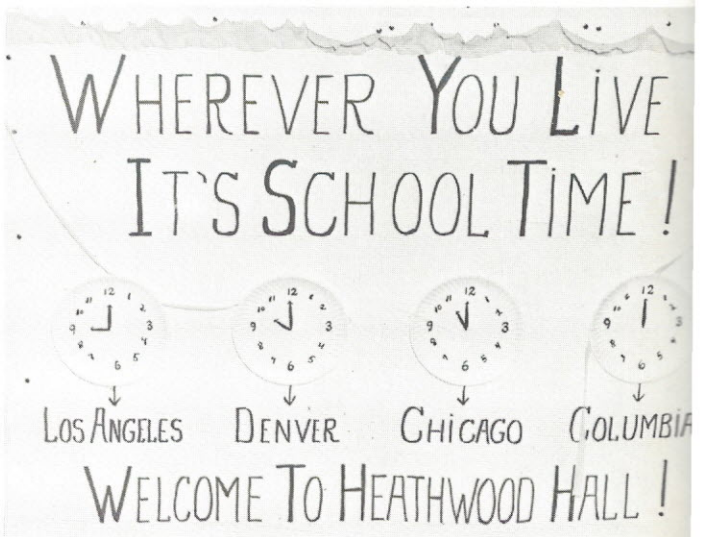 WHEREVER YOU LIVE
IT'S SCHOOL TIME!
12 1 2 3 4 5 6 7 8 9 10 11
12 1 2 3 4 5 6 7 8 9 10 11
12 1 2 3 4 5 6 7 8 9 10 11
12 1 2 3 4 5 6 7 8 9 10 11
LOS ANGELES DENVER CHICAGO COLUMBIA
WELCOME TO HEATHWOOD HALL!